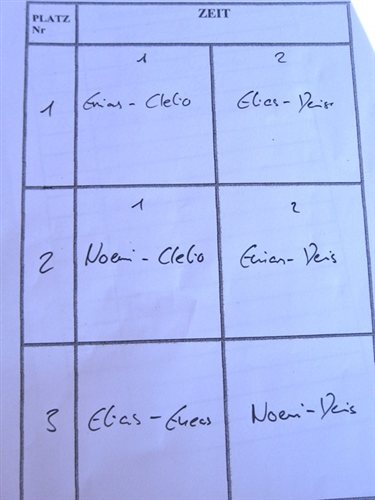 PLATZ ZEIT
Nr
1 2
1 Enias - Clelio Elias - Denis
1 2
2 Noemi - Clelio Enias - Denis
3 Elias - Eneas Noemi - Denis